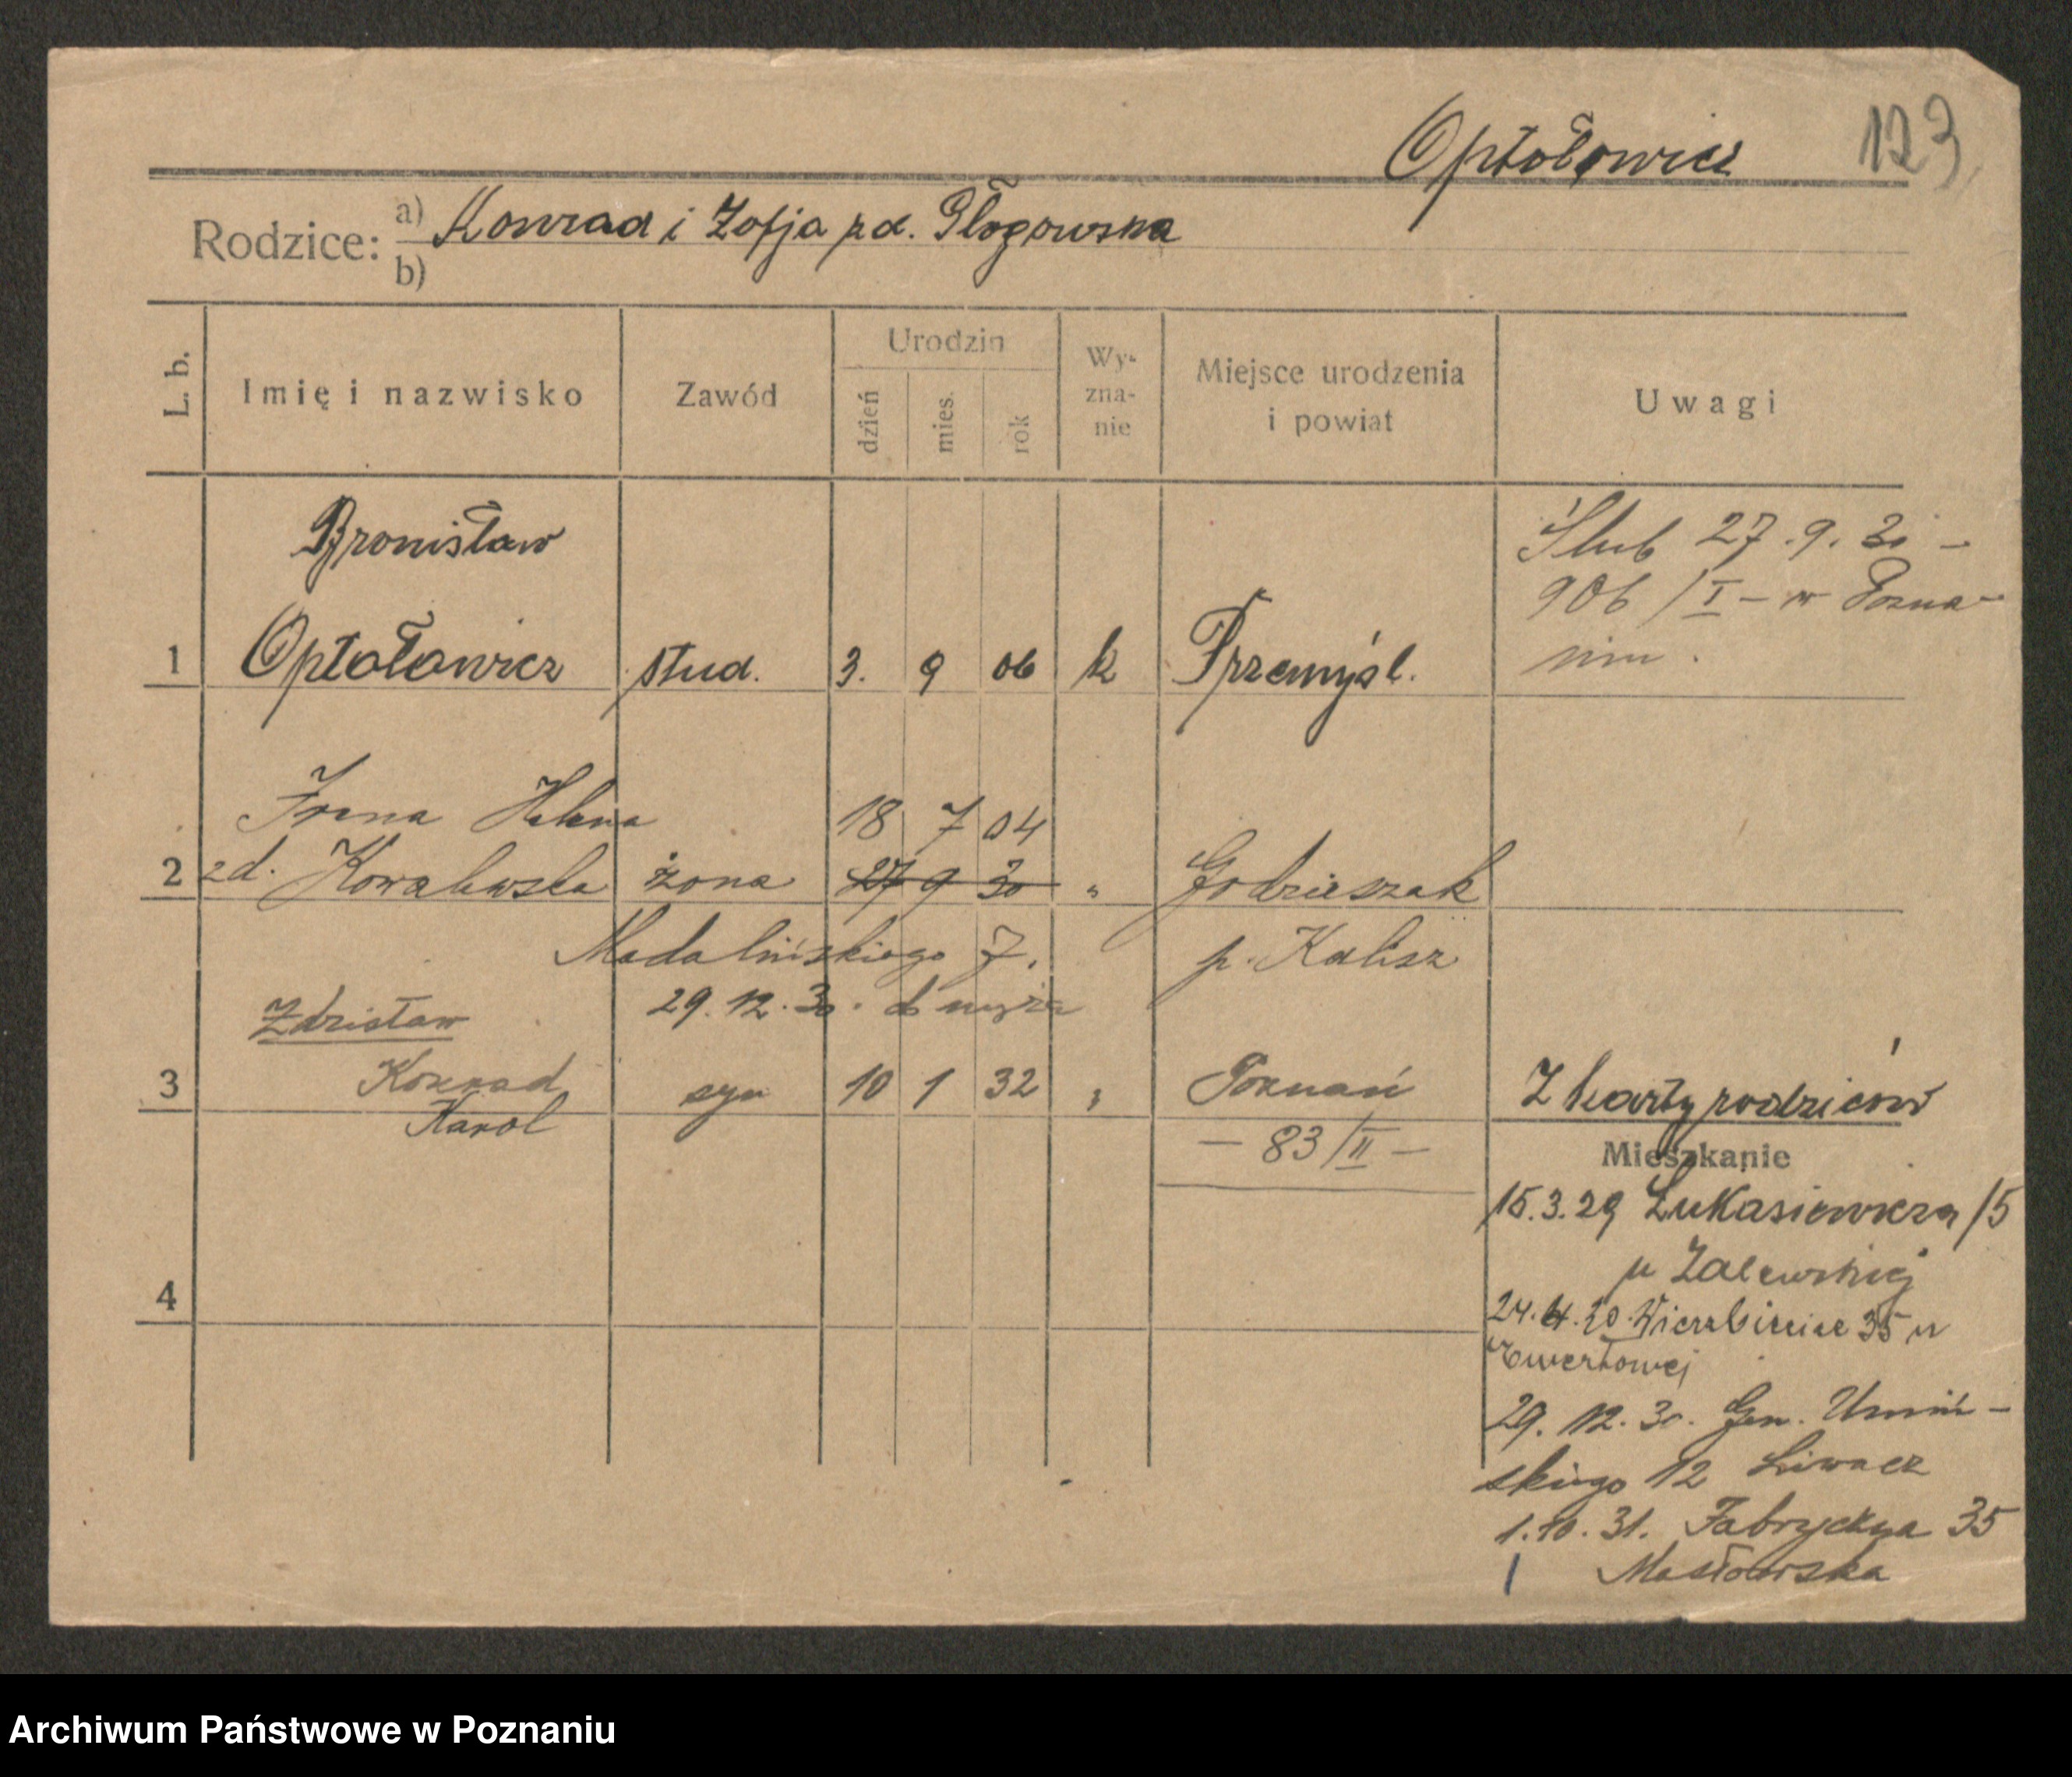 Optołowicz 123
Rodzice: a) Konrad i Zofja zd. Głogowska
b)
L. b. Imię i nazwisko Zawód Urodzin dzień mies. rok Wy-zna-nie Miejsce urodzenia i powiat Uwagi
Bronisław
1 Optołowicz stud. 3. 9 06 k Przemyśl.
Ślub 27.9.30 –
906/I – w Pozna-
niu.
Irena Helena 18 7 04
2 zd. Kowalewska żona 27 9 30 " Godzieszak
Madalińskiego 7. p. Kalisz
29.12.30. do męża
Zdzisław
3 Konrad syn 10 1 32 " Poznań Z karty rodziców
Karol – 83/II –
Mieszkanie
15.3.29 Łukasiewicza 15
u Zalewskiej
24.4.30. Wierzbięcice 35 u
Ewertowej
29.12.30. Gen. Umiń-
skiego 12 Liwacz
4
1.10.31. Fabryczna 35
Masłowska
Archiwum Państwowe w Poznaniu